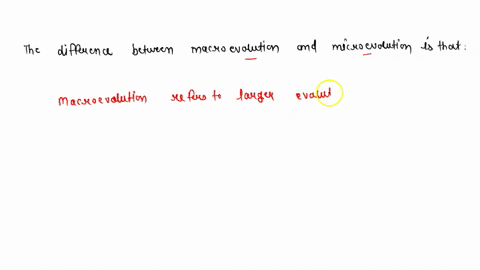 The difference between macroevolution and microevolution is that:
Macroevolution refers to larger evalut